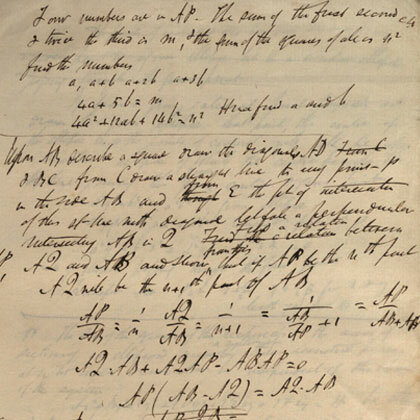 Four numbers are in AP. The sum of the first second 4th
& twice the third is m, & the sum of the squares of all is n²
find the numbers
a, a+b a+2b a+3b
4a + 5b = m
4a² + 12ab + 14b² = n² Hence find a and b
Upon AB describe a square draw the diagonals AD
& BC from C draw a straight line to any point P
in the side AB and from E the pt of intersection
of this st line with diagonal let fall a perpendicular
intersecting AB in Q Find a relation between
AQ and AB and show from this that if AP be the nth part
AQ will be the n+1th part of AB
AP/AB = 1/n AQ/AB = 1/n+1 = 1/AB/AP + 1 = AP/AB+AP
AQ·AB + AQ AP - AB AP = 0
AP (AB - AQ) = AQ·AB